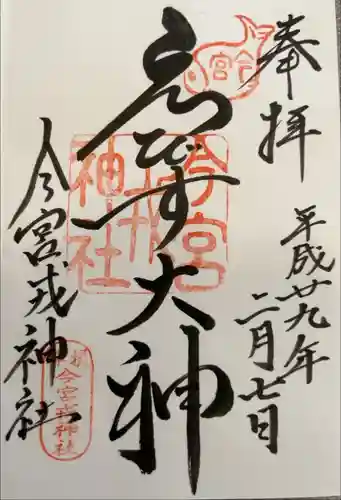 奉拝
平成廿九年
二月七日
ゑびす大神
今宮戎神社
今宮
今宮
戎
神社
今宮戎神社